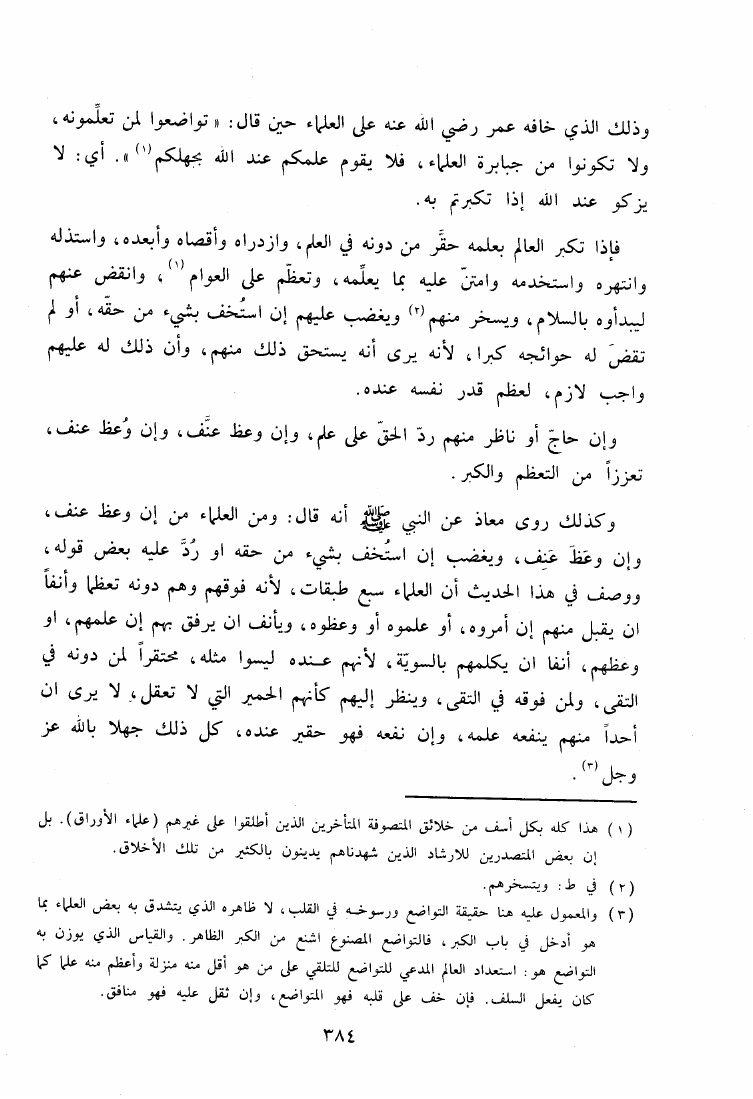 وذلك الذي خافه عمر رضي الله عنه على العلماء حين قال: « تواضعوا لمن تعلِّمونه،
ولا تكونوا من جبابرة العلماء، فلا يقوم علمكم عند الله بجهلكم(١) ». أي: لا
يزكو عند الله إذا تكبرتم به.
فإذا تكبر العالم بعلمه حقَّر من دونه في العلم، وازدراه وأقصاه وأبعده، واستذله
وانتهره واستخدمه وامتنّ عليه بما يعلِّمه، وتعظّم على العوام(١)، وانقض عنهم
ليبدأوه بالسلام، ويسخر منهم(٢) ويغضب عليهم إن استُخف بشيء من حقّه، أو لم
تقضَ له حوائجه كبرا، لأنه يرى أنه يستحق ذلك منهم، وأن ذلك له عليهم
واجب لازم، لعظم قدر نفسه عنده.
وإن حاجّ أو ناظر منهم ردّ الحقّ على علم، وإن وعظ عنَّف، وإن وُعظ عنف،
تعززاً من التعظم والكبر.
وكذلك روى معاذ عن النبي ﷺ أنه قال: ومن العلماء من إن وعظ عنف،
وإن وعَظَ عَنِف، ويغضب إن استُخف بشيء من حقه او رُدَّ عليه بعض قوله،
ووصف في هذا الحديث أن العلماء سبع طبقات، لأنه فوقهم وهم دونه تعظما وأنفاً
ان يقبل منهم إن أمروه، أو علموه أو وعظوه، ويأنف ان يرفق بهم إن علمهم، او
وعظهم، أنفا ان يكلمهم بالسويّة، لأنهم عنده ليسوا مثله، محتقراً لمن دونه في
التقى، ولمن فوقه في التقى، وينظر إليهم كأنهم الحمير التي لا تعقل، لا يرى ان
أحداً منهم ينفعه علمه، وإن نفعه فهو حقير عنده، كل ذلك جهلا بالله عز
وجل(٣).
(١) هذا كله بكل أسف من خلائق المتصوفة المتأخرين الذين أطلقوا على غيرهم (علماء الأوراق). بل
إن بعض المتصدرين للارشاد الذين شهدناهم يدينون بالكثير من تلك الأخلاق.
(٢) في ط: ويتسخرهم.
(٣) والمعمول عليه هنا حقيقة التواضع ورسوخه في القلب، لا ظاهره الذي يتشدق به بعض العلماء بما
هو أدخل في باب الكبر، فالتواضع المصنوع اشنع من الكبر الظاهر. والقياس الذي يوزن به
التواضع هو: استعداد العالم المدعي للتواضع للتلقي على من هو أقل منه منزلة وأعظم منه علما كما
كان يفعل السلف. فإن خف على قلبه فهو المتواضع، وإن ثقل عليه فهو منافق.
٣٨٤